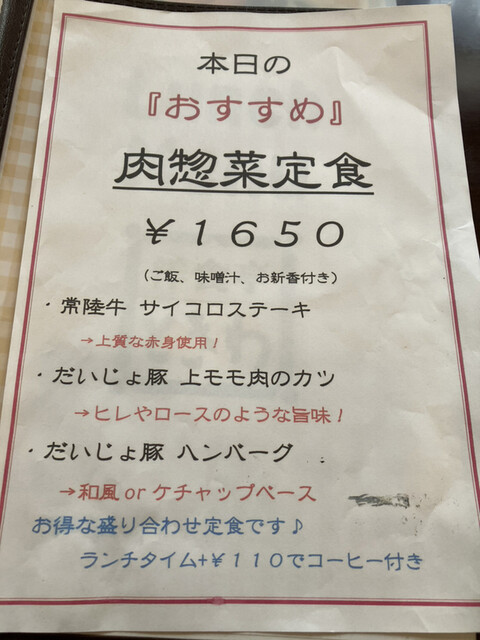 本日の
『おすすめ』
肉惣菜定食
￥１６５０
（ご飯、味噌汁、お新香付き）
・常陸牛 サイコロステーキ
→上質な赤身使用！
・だいじょ豚 上モモ肉のカツ
→ヒレやロースのような旨味！
・だいじょ豚 ハンバーグ
→和風 or ケチャップベース
お得な盛り合わせ定食です♪
ランチタイム+￥１１０でコーヒー付き